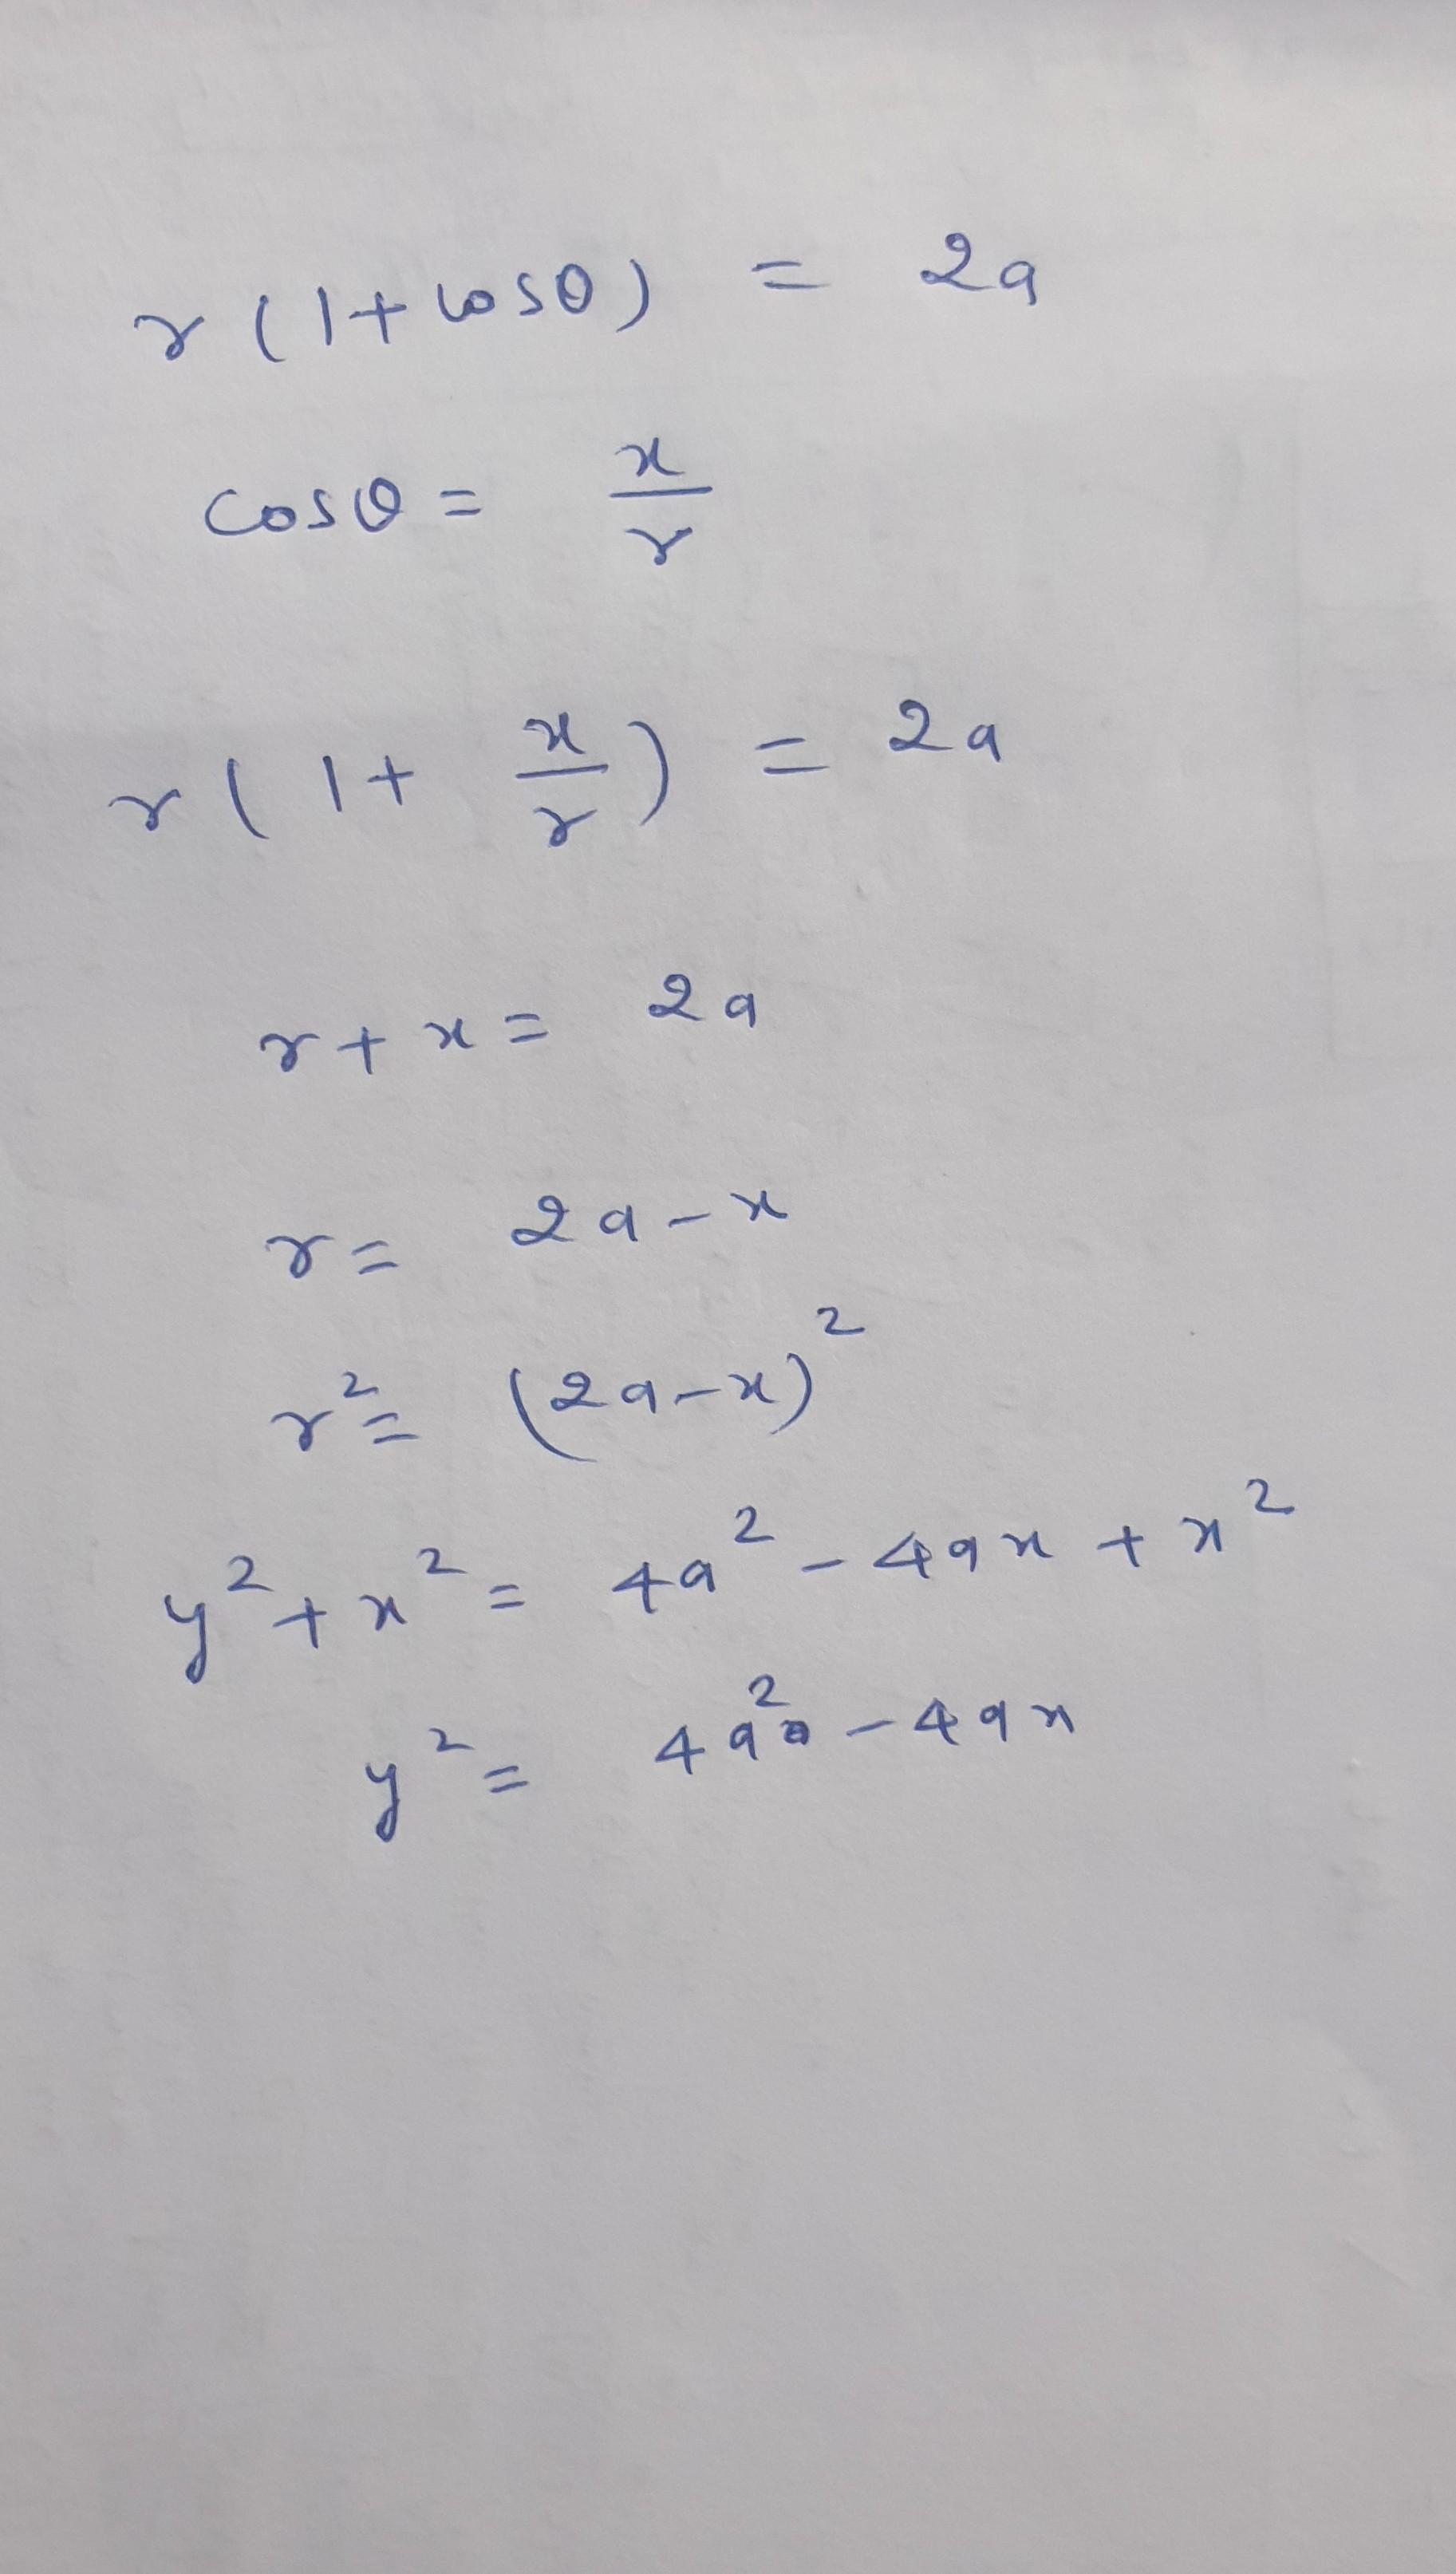 r(1+cosθ) = 2a
cosθ = x/r
r(1+ x/r) = 2a
r+x = 2a
r = 2a-x
r² = (2a-x)²
y²+x² = 4a² - 4ax + x²
y² = 4a² - 4ax